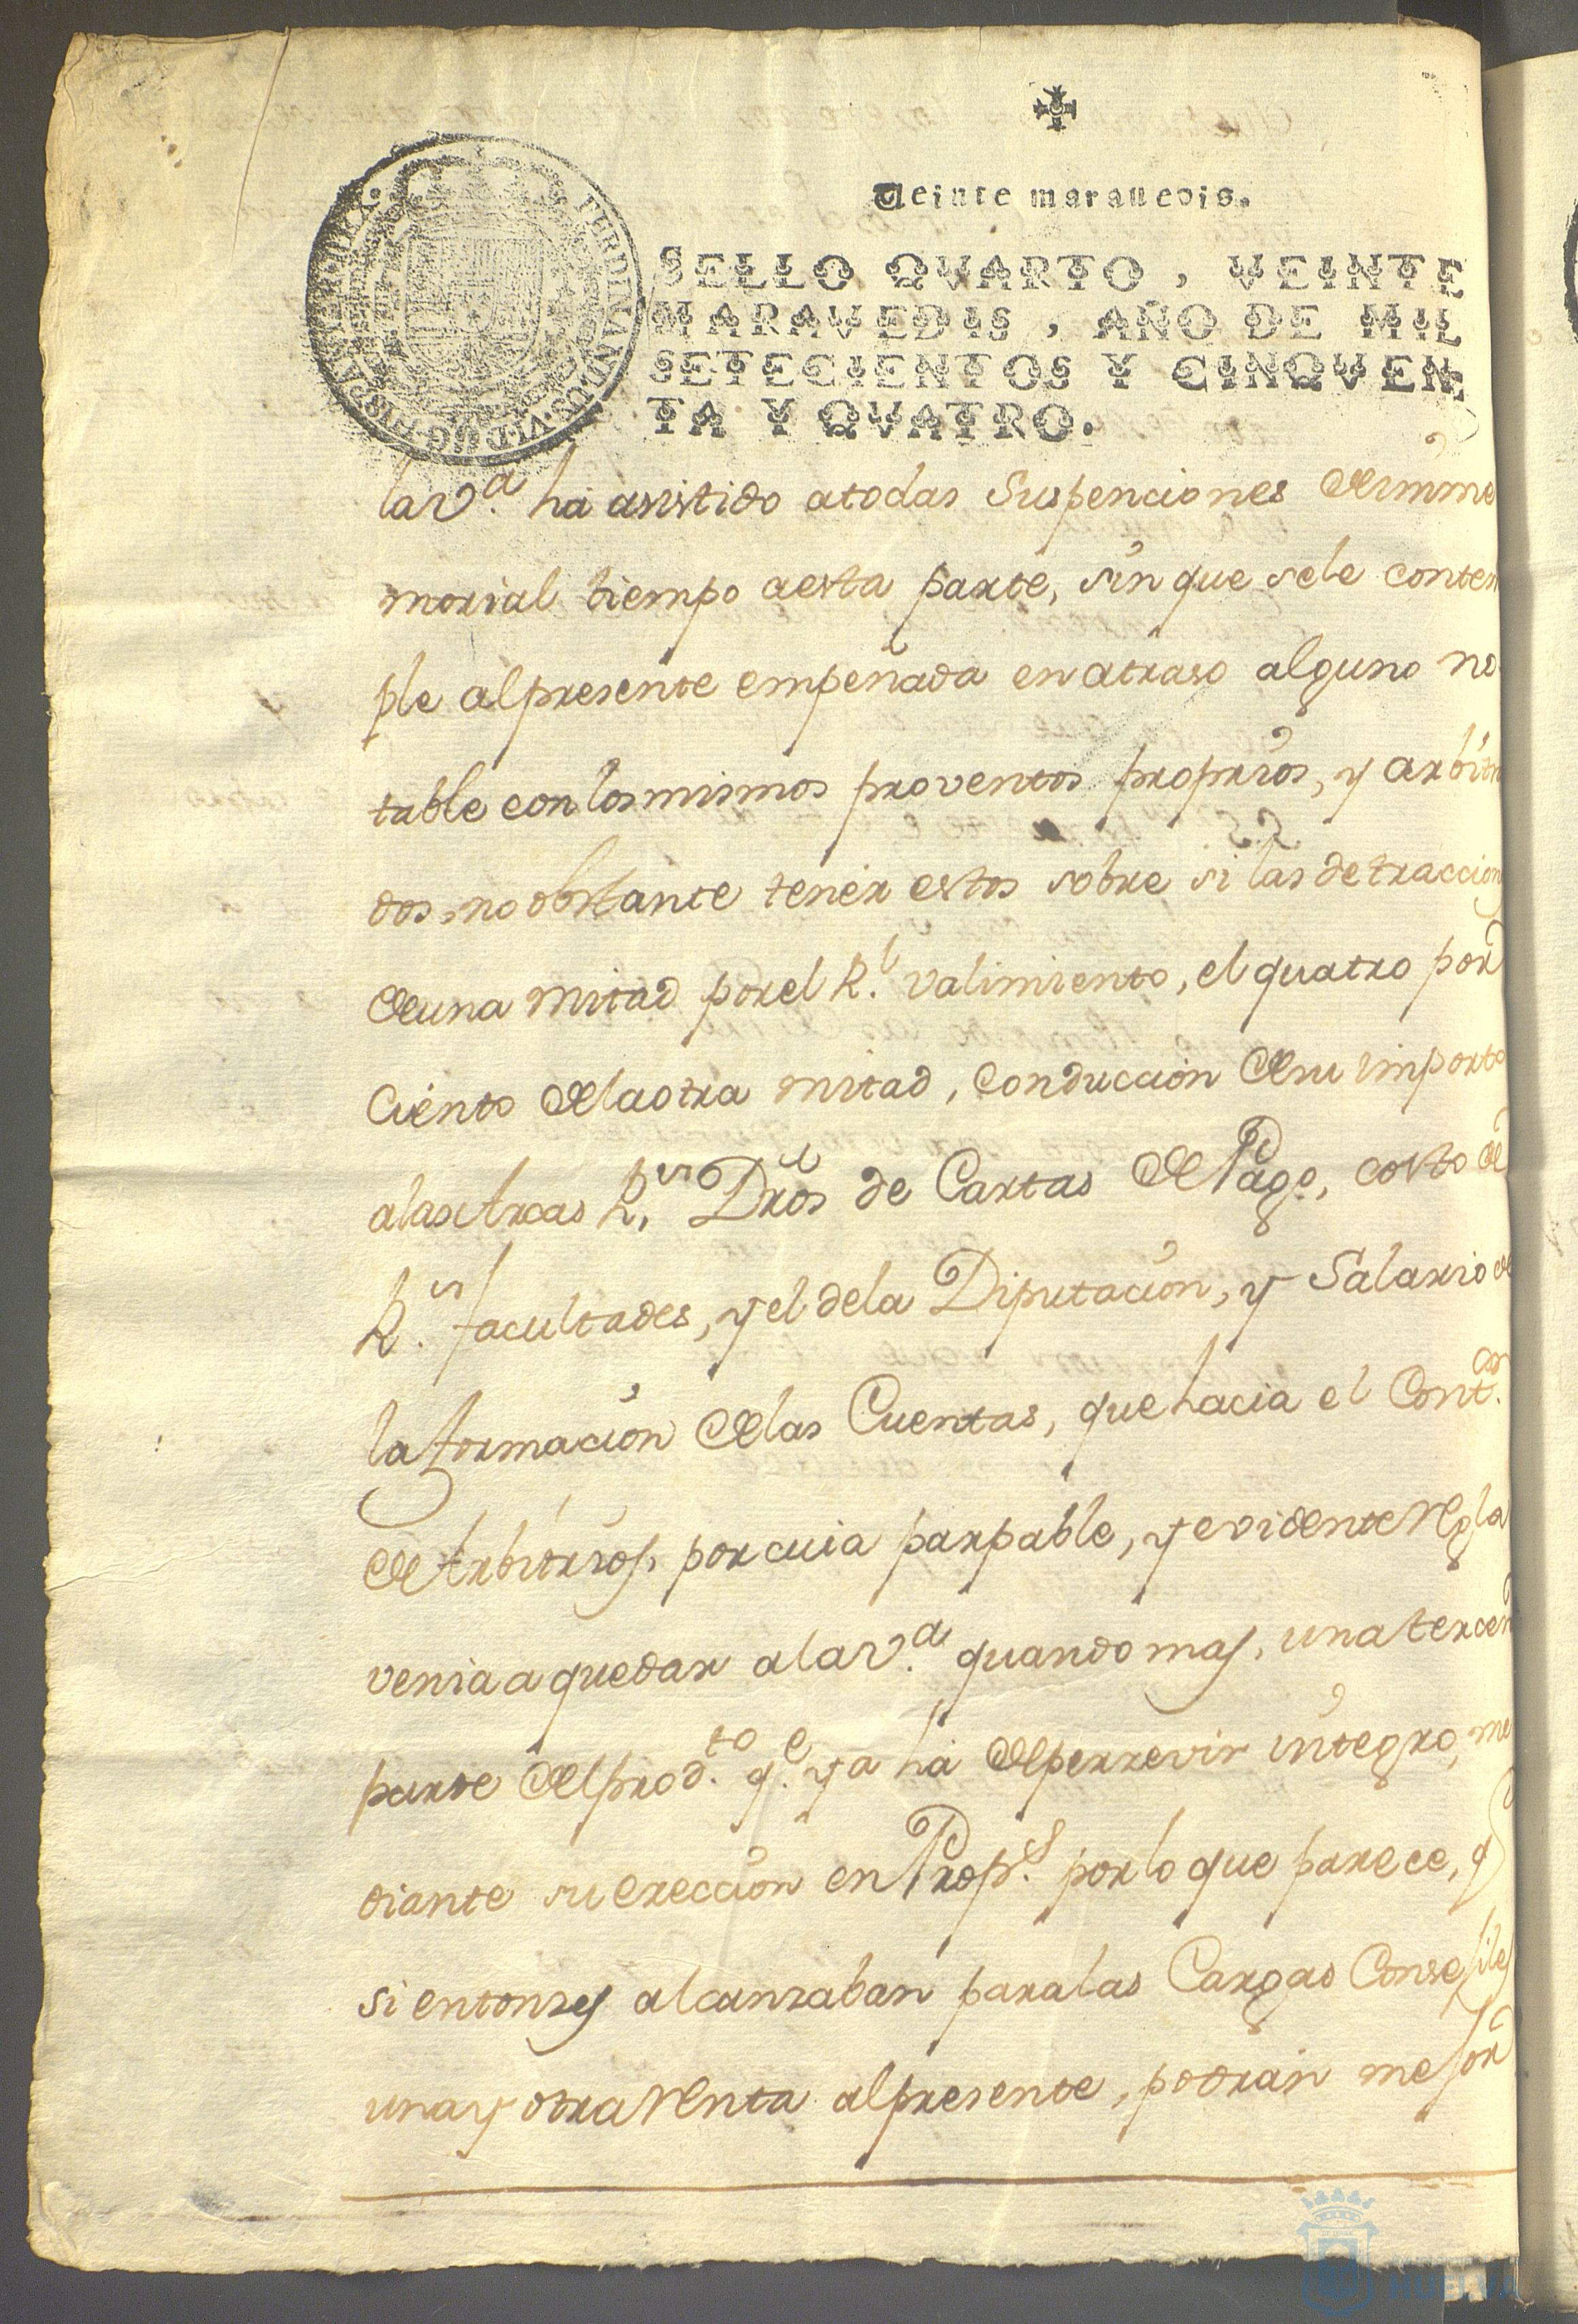 Veinte maravedis.
SELLO QVARTO, VEINTE
MARAVEDIS, AÑO DE MIL
SETECIENTOS Y CINQVEN
TA Y QVATRO.
FERDINANDUS·VI·D·G·HISPANIAR·REX
la v.ª ha asistido a todas Suspenciones de imme
morial tiempo a esta parte, sin que se le contem
ple al presente empeñada en atraso alguno no
table con los mismos proventos proprios, y arbitra
dos, no obstante tenér estos sobre si las detraccion
de una mitad por el R.l valimiento, el quatro por
Ciento de la otra mitad, Conduccion de su importe
a las Arcas R.es Dros de Cartas de Pago, costo de
R.es facultades, y el de la Diputacion, y Salario de
la formacion de las Cuentas, que hacia el Cont.or
de Arbitrios, por cuia parpable, y evidente regla
venia a quedar a la v.ª quando mas, una tercera
parte del prod.to q.e ya ha de perzevir integro, me
diante su ereccion en Prop.s por lo que parece, q
si entonzes alcanzaban para las Cargas Consejiles
una y otra renta al presente, podrán mejor